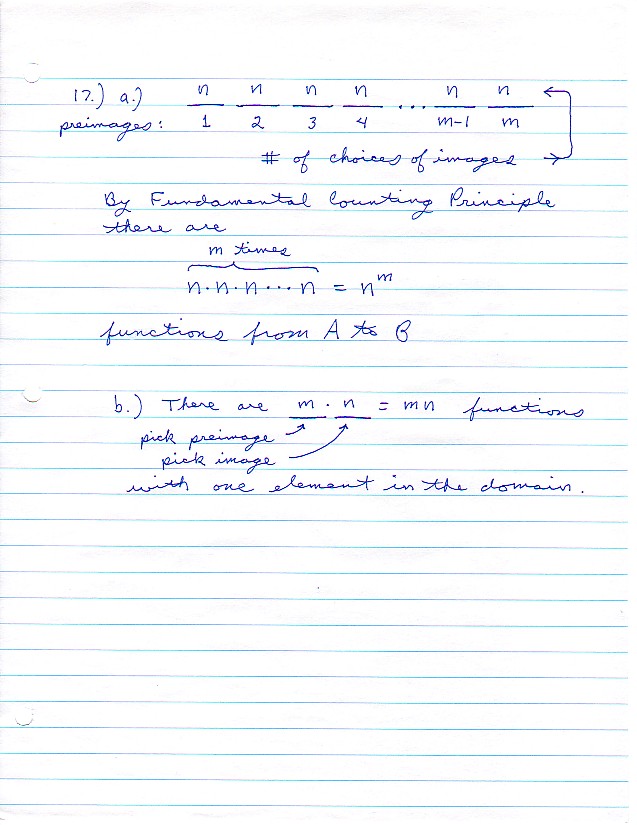 17.) a.) n n n n n n
preimages: 1 2 3 4 ... m-1 m
# of choices of images
By Fundamental Counting Principle
there are
m times
n·n·n···n = n^m
functions from A to B
b.) There are m · n = mn functions
pick preimage
pick image
with one element in the domain.